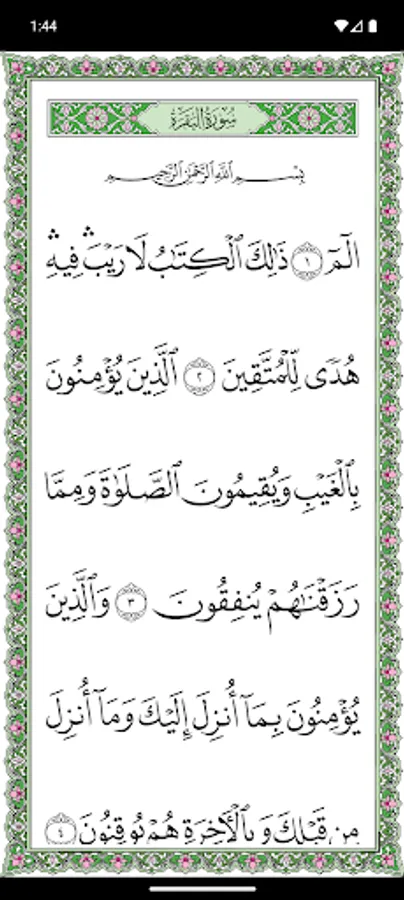 1:44
سُورَةُ البَقَرَةِ
بِسْمِ ٱللَّهِ ٱلرَّحْمَٰنِ ٱلرَّحِيمِ
الٓمٓ ١ ذَٰلِكَ ٱلْكِتَٰبُ لَا رَيْبَ ۛ فِيهِ ۛ
هُدًى لِّلْمُتَّقِينَ ٢ ٱلَّذِينَ يُؤْمِنُونَ
بِٱلْغَيْبِ وَيُقِيمُونَ ٱلصَّلَوٰةَ وَمِمَّا
رَزَقْنَٰهُمْ يُنفِقُونَ ٣ وَٱلَّذِينَ
يُؤْمِنُونَ بِمَآ أُنزِلَ إِلَيْكَ وَمَآ أُنزِلَ
مِن قَبْلِكَ وَبِٱلْءَاخِرَةِ هُمْ يُوقِنُونَ ٤